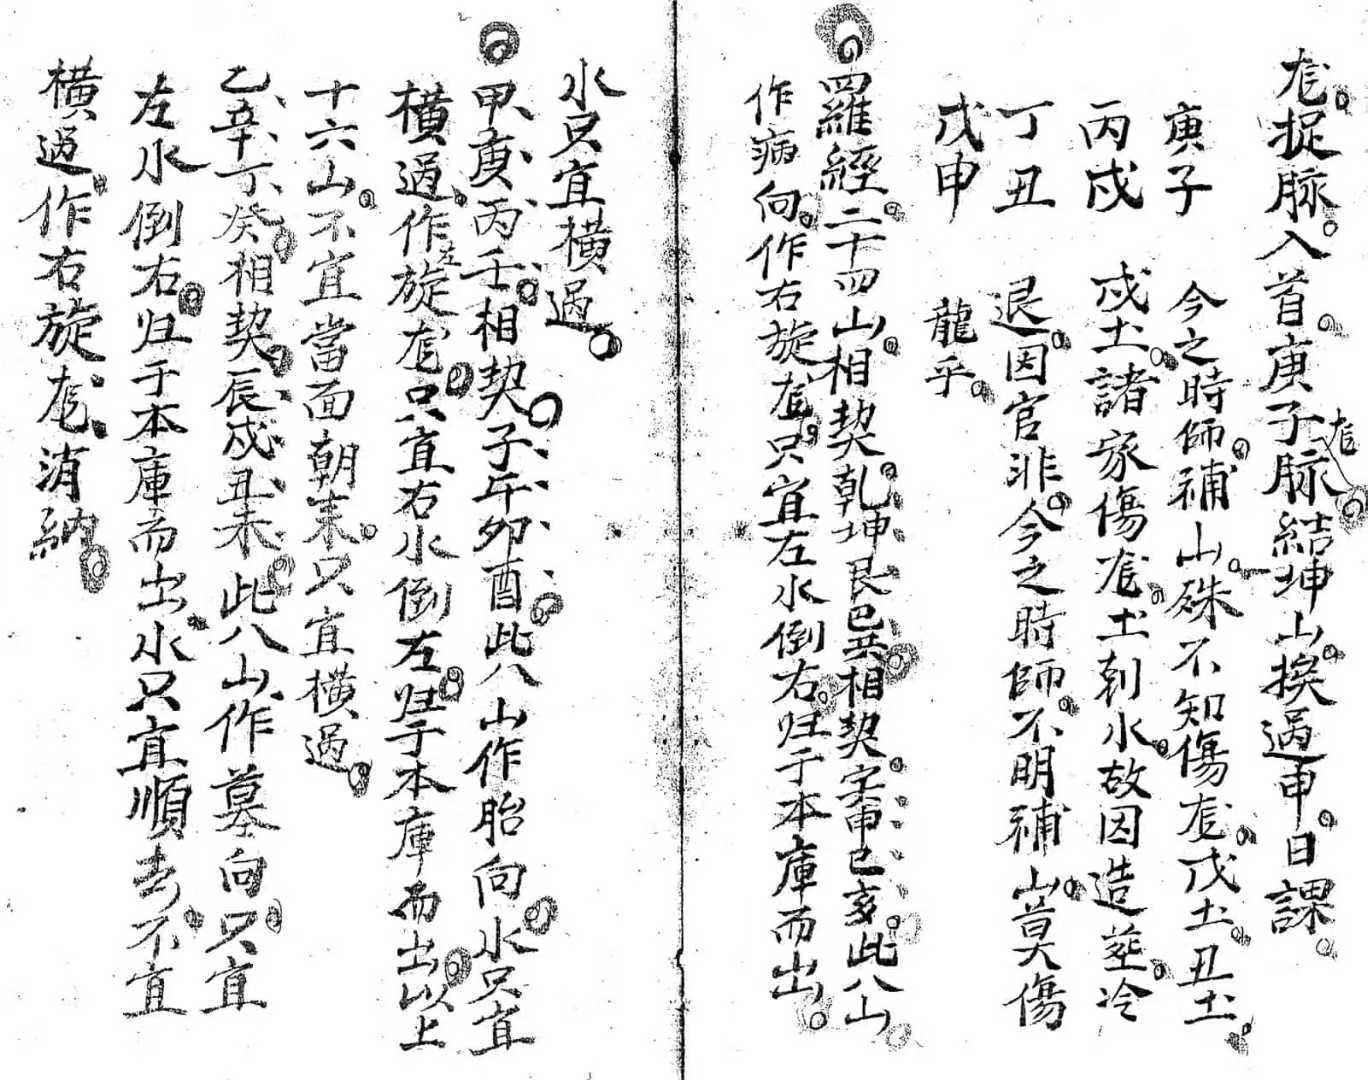 尨捉脉入首庚子尨脉結坤山挨過申日課
庚子　今之時師補山硃不知傷尨戊土丑土
丙戌　戌土諸家傷尨土剋水故因造塟冷
丁丑　退因官非今之時師不明補山莫傷
戊申　龍乎
羅經二十四山相契乾坤艮巳共相契寅申巳亥此八山
作病向作右旋尨只宜左水倒右归于本庫而出
水只宜橫過
甲庚丙壬相契子午卯酉此八山作胎向水只宜
橫過作左旋尨只宜右水倒左归于本庫而出以上
十六山不宜當面朝来只宜橫過
乙辛丁癸相契辰戌丑未此八山作墓向只宜
左水倒右归于本庫而出水只宜順去不宜
橫過作右旋尨消納